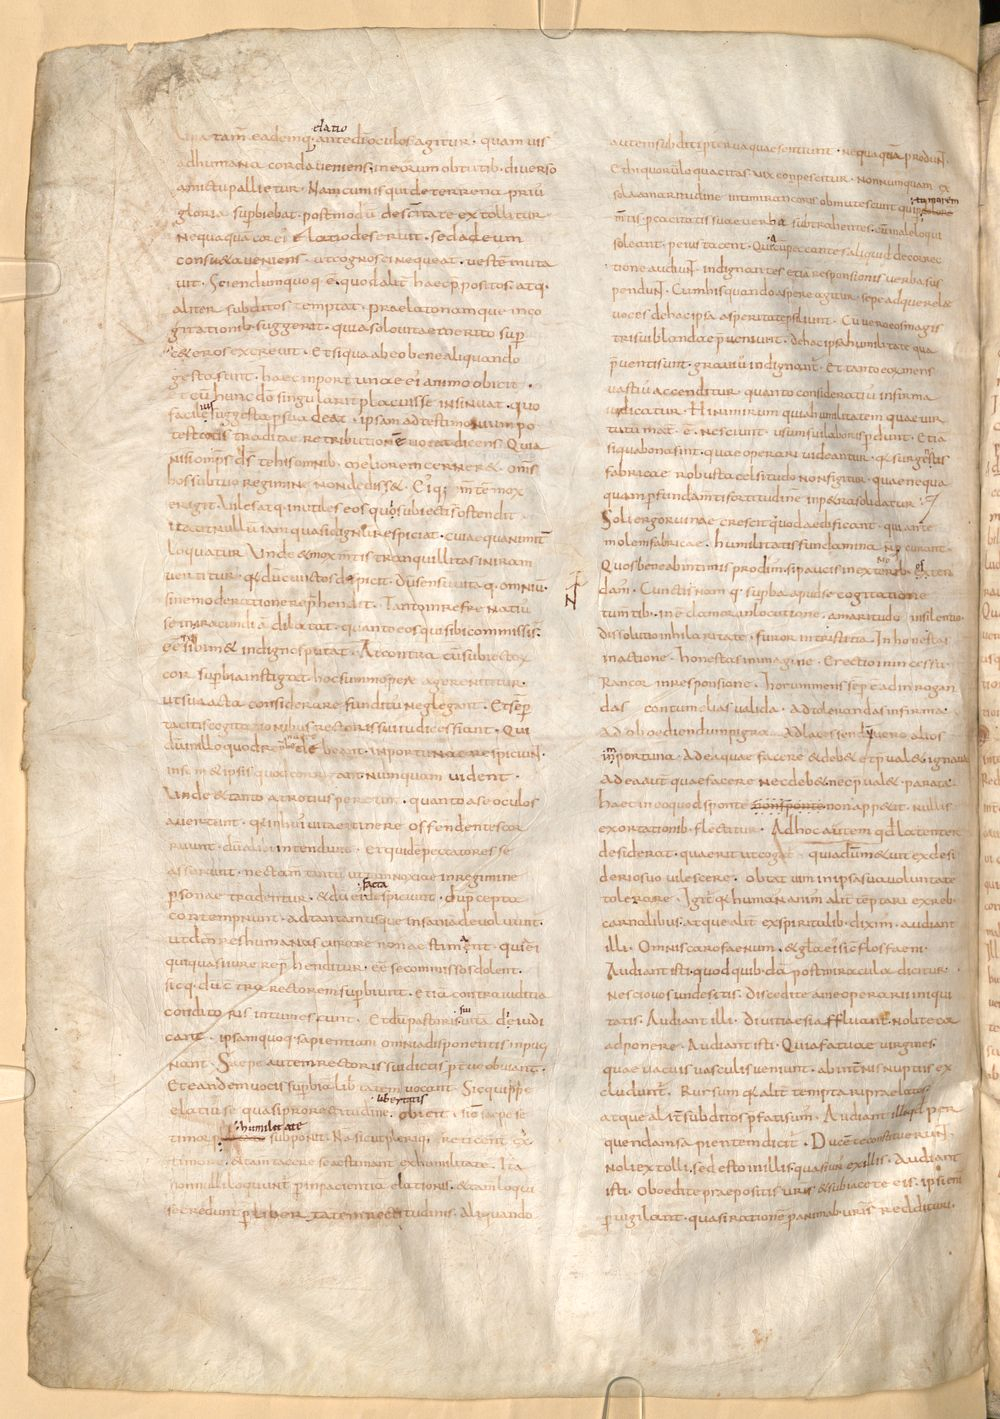 elatio
una tam̄ eademq; ante dī oculos agitur · quam uis
ad humana corda ueniens · in eorum obtutib; diuerso
amictu pallietur · Nam cum is qui de terrena prius
gloria supbiebat · postmodū de sc̄itate extollitur
Nequaquā cor ei elatio deseruit · sed ad eum
consu&a ueniens · ut cognosci nequeat · uestē muta
uit · Sciendum quoq; ē · quod alit̄ haec p̄positos · atq;
aliter subditos temptat · praelato namque in co
gitationib; suggerit · quia solo uitae merito sup̄
c&eros excreuit · Et siqua ab eo bene aliquando
gesta sunt · haec inportunae ei animo obicit ·
et cū hunc dō singularit̄ placuisse insinuat · quo
facile suggesta psuadeat · ipsam ad testimonium po
testatis traditae retributionē uocat dicens · Quia
nisi omp̄s d̄s te his omnib; meliorem cerner& · om̄s
hos sub tuo regimine non dediss& · Eiq; m̄tem mox
erigit · Viles atq; inutiles eos qui subiecti s̄ ostendit ·
ita ut nullū iam quasi dignū respiciat · cui aequanimit̄
loquatur · Vnde & mox m̄tis tranquillitas in iram
uertitur · q& dū cunctos despicit · Dū sensū uitaq; omniū ·
sine moderatione rep̄hendit · Tanto in se frenatiu
se in iracundiā dilatat · quanto eos qui sibi commissis̄
eē sibim& indignos putat · At contra cū subiector
cor supbia instigat · hoc summopere agere nititur ·
ut sua acta considerare funditus neglegant · Et semp̄
tacitis cogitationibus rectoris sui iudices fiant · Qui
dum illo quod reprehendere debeant · inportunae respiciunt̄ ·
in sem&ipsis quod corrigant numquam uident ·
Vnde & tanto atrotius pereunt · quanto a se oculos
auertunt · q& in hui uitae itinere offendentes cor
ruunt · dū alibi intendunt · Et quidē peccatores se
asserunt · nec tam̄ tantū ut tam noxiae in regimine
facta
psonae tradentur · & dū ei despiciunt · dū p̄cepta
contempnunt · ad tantam usque insaniā deuoluunt ·
ut dm̄ res humanas curare non aestiment · qui ei
qui quasi iure rep̄henditur · eē se commissos dolent ·
sicq; dū contra rectorem supbiunt · etiā contra iuditia
conditoris intumescunt · Et dū pastoris sui uitā diiudi
cant · ipsam quoq; sapientiam omnia disponentis inpug
nant · Saepe autem rectoris sui dictis p̄teruē obuiant ·
Et eandem uocis supbiā libertatem uocant · Sic quippe
elatiu se quasi pro rectitudine obicit · sic saepe se
libertatis
humilitate
timor subponit · Nā sicut plerīq; reticent ex
timore · & tam̄ tacere se aestimant ex humilitate · Ita
nonnulli loquunt̄ p̄ inpacientiā elationis · & tam̄ loqui
se credunt p̄ libertatem rectitudinis · Aliquando
autem subditi pterua quae sentiunt · nequaquā produn̄t ·
Et hi quorū loquacitas uix conpescitur · Nonnumquam ex
sola amaritudine intimi rancoris obmutescunt · qui p̄ tumorem
m̄tis · p̄cacitatis suae uerba subtrahentes · cū male loqui
soleant · peius tacent · Quia cū peccantes aliquid de correc
tione audiun̄t · indignantes etiā responsionis uerba sus
pendun̄t · Cum his quando aspere agitur · sepe ad querelae
uoces de hac ipsa asperitate psiliunt · Cū uero eos magis
tri sui blandae p̄ueniunt · de hac ipsa humilitate qua
p̄uenti sunt · grauiū indignant̄ · Et tanto eorū mens
uastiū accenditur · quanto consideratiū infirma
iudicatur · Hi nimirum quia humilitatem quae uir
tutū mat̄ · ē · nesciunt · usum sui laboris pdunt · Etiā
siqua bona sint · quae operari uideantur · q& surgentis
fabricae robusta celsitudo non figitur · quae nequa
quam p̄ fundam̄ti fortitudinē in petra solidatur ·
Soli ergo ruinae crescit quod aedificant · quia ante
molem fabricae · humilitatis fundamina non curant ·
Quos bene ab intimis prodim̄ · si paucis in exterioreb; ostend
dam̄ · Cunctis nam̄q; supbia apud se cogitatione
tumtib; inē clamor in locutione · amaritudo in silentio ·
dissolutio in hilaritate · furor in tristitia · Inhonestas
in actione · honestas in imagine · Erectio in incessu ·
Rancor in responsione · Horum mens semp̄ ē ad inrogan
das contumelias ualida · ad tolerandas infirma ·
Ad oboediendum pigra · Ad lacessendū uero alios
inportuna · Ad ea quae facere & deb& et p̄ual& · ignaua ·
Ad ea aut̄ quae facere nec deb& nec p̄ual& · parata ·
haec in eo quod sponte non app&it · nullis
exortationib; flectitur · Ad hoc autem qd̄ latenter
desiderat · quaerit ut cogat̄ · quia dum m&uit ex desi
derio suo uilescere · obtat uim in ipsa sua uoluntate
tolerare · Igit̄ q& humanū animū alit̄ temptari ex reb;
carnalibus · atque alit̄ ex spiritalib; diximus · audiant
illi · Omnis caro faenum · & gl̄a eī sic flos faeni ·
Audiant isti · quod quib;dā post miracula dicitur ·
Nescio uos unde estis · Discedite a me operarii iniqui
tatis · Audiant illi · Diuitiae si affluant · nolite cor
adponere · Audiant isti · Quia fatuae uirgines
quae uacuis uasculis ueniunt · ab int̄nis nuptiis ex
cludunt̄ · Rursum q& alit̄ temptari praelatos
atque alit̄ subditos p̄fatisum̄ · Audiant illi qd̄ per
quendam sapientem dicit̄ · Ducē te constituerun̄t ·
Noli extolli · sed esto in illis · quasi unus ex illis · Audiant
isti · Oboedite praepositis uris̄ · & subiacete eis · ipsi enī
p̄uigilant · quasi rationē p̄ animab; uris̄ reddituri ·